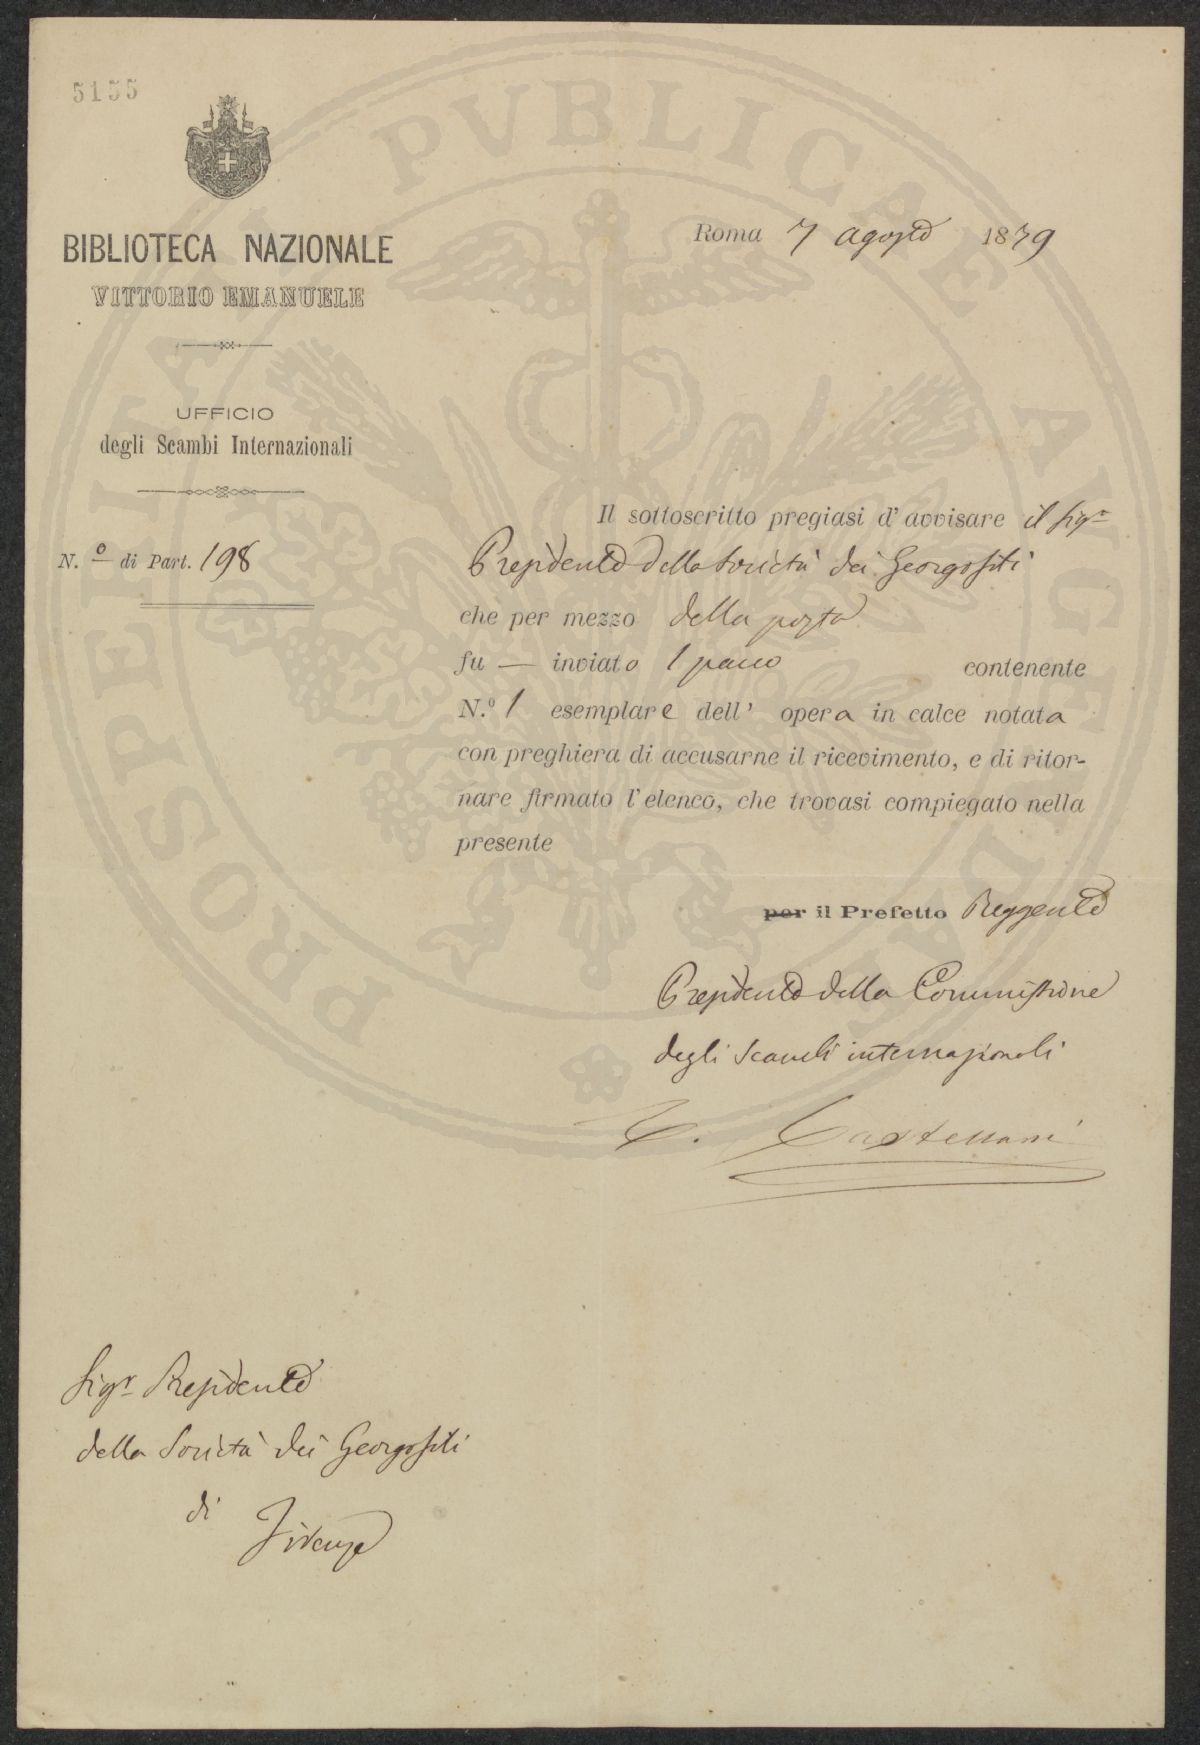 5155
BIBLIOTECA NAZIONALE
VITTORIO EMANUELE
UFFICIO
degli Scambi Internazionali
N.º di Part. 198
Roma 7 agosto 1879
Il sottoscritto pregiasi d'avvisare il Sigr
Presidente della Società dei Georgofili
che per mezzo della posta
fu — inviato 1 pacco contenente
N.º 1 esemplare dell' opera in calce notata
con preghiera di accusarne il ricevimento, e di ritor-
nare firmato l'elenco, che trovasi compiegato nella
presente
per il Prefetto Reggente
Presidente della Commissione
degli scambi internazionali
C. Castellani
Sigr Presidente
della Società dei Georgofili
di
Firenze
PROSPERITATI PVBLICAE AVGENDAE